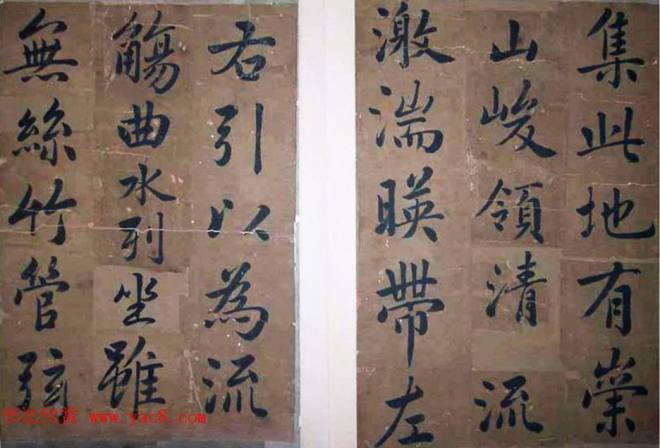 集此地有崇
山峻領清流
激湍暎帶左
右引以為流
觴曲水列坐雖
無絲竹管弦
书法欣赏 www.yac8.com